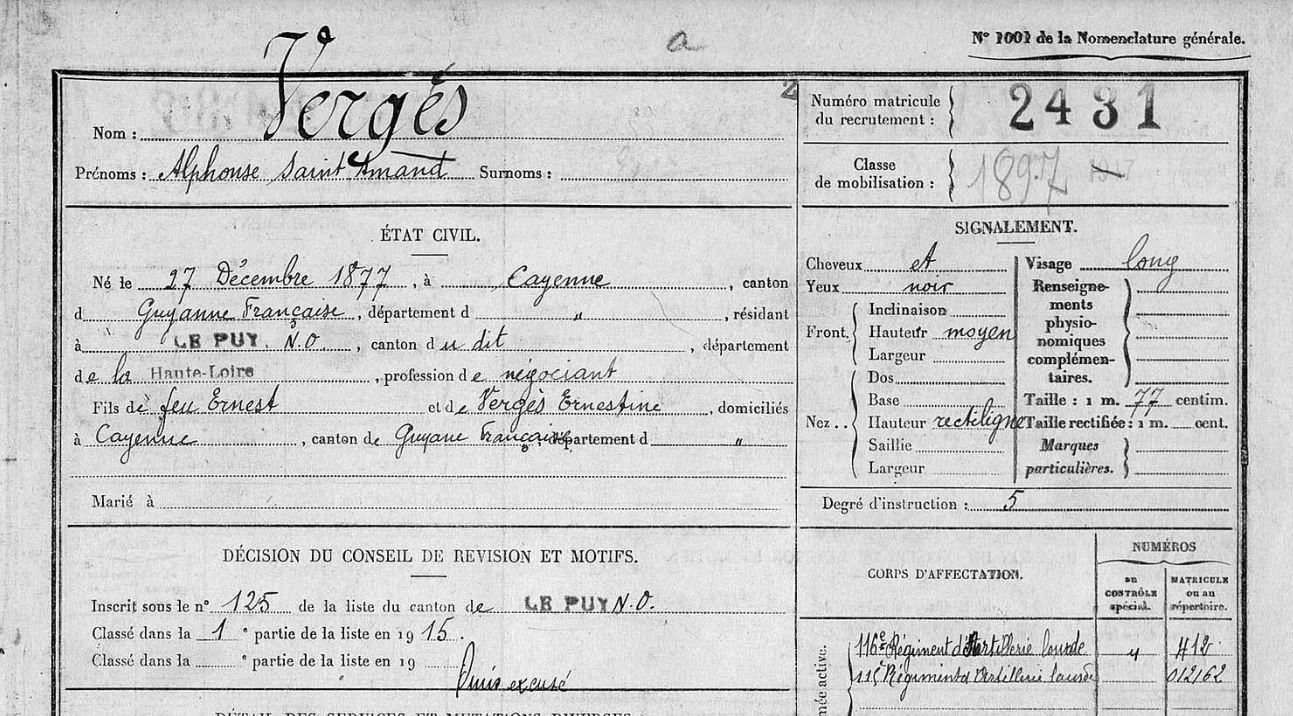 a
N° 1001 de la Nomenclature générale.
Nom : Vergès
Prénoms : Alphonse Saint Amand Surnoms :
2
Numéro matricule du recrutement : 2431
Classe de mobilisation : 1897
ÉTAT CIVIL.
Né le 27 Décembre 1877, à Cayenne, canton
d Guyanne Française, département d „, résidant
à LE PUY. N.O, canton du dit, département
de la Haute-Loire, profession de négociant
Fils de feu Ernest et de Vergès Ernestine, domiciliés
à Cayenne, canton de Guyane française, département d „
Marié à
SIGNALEMENT.
Cheveux et
Yeux noir
Front. Inclinaison
Hauteur moyen
Largeur
Nez .. Dos
Base
Hauteur rectiligne
Saillie
Largeur
Visage long
Renseigne-
ments
physio-
nomiques
complémen-
taires.
Taille : 1 m. 77 centim.
Taille rectifiée : 1 m. cent.
Marques
particulières.
Degré d'instruction : 5
DÉCISION DU CONSEIL DE REVISION ET MOTIFS.
Inscrit sous le n° 125 de la liste du canton de LE PUY N.O.
Classé dans la 1 e partie de la liste en 1915.
Classé dans la e partie de la liste en 19
excusé
CORPS D'AFFECTATION.
NUMÉROS
AU CONTRÔLE spécial.
MATRICULE ou au répertoire.
116e Régiment d'Artillerie lourde „ 412
115 Régiment d'Artillerie lourde 012162
mée active.
DÉTAIL DES SERVICES ET MUTATIONS DIVERSES.